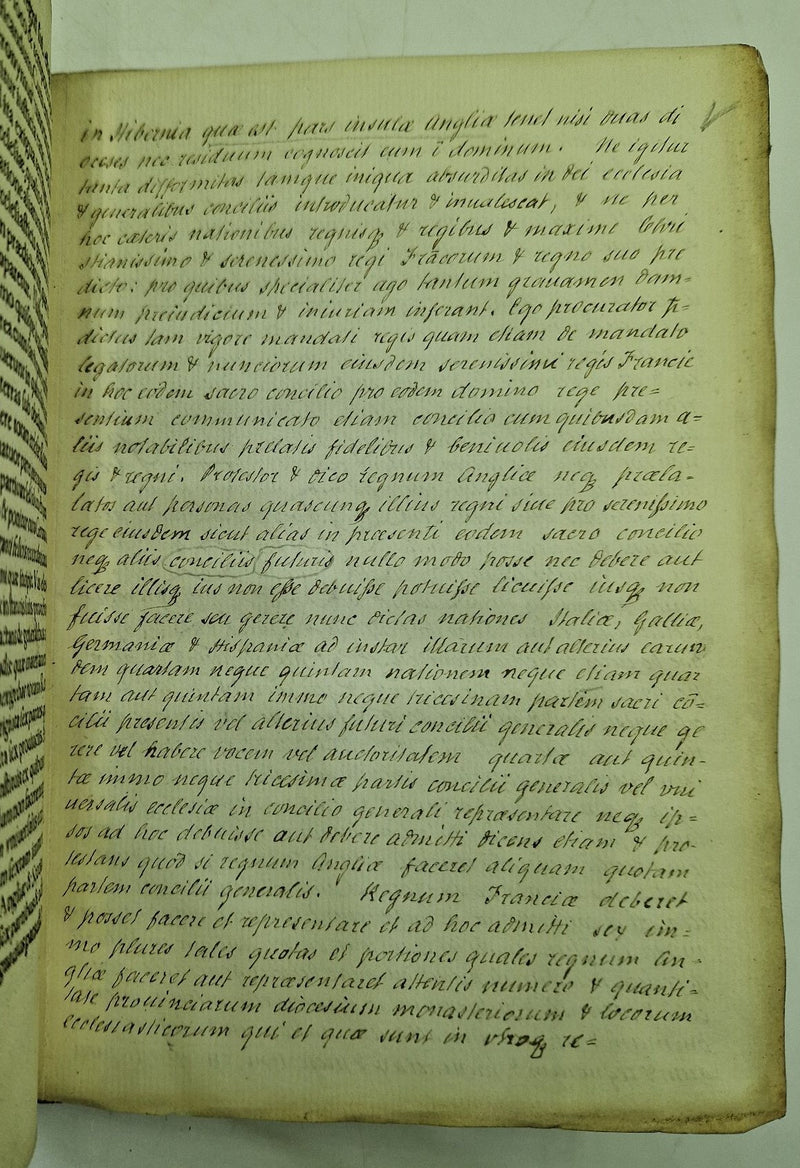 in Hibernia quæ est pars insulæ Angliæ tenet nisi duas di
oceses nec residuum cognoscit eum ī dominum. Ne igitur
tanta difformitas tamque iniqua absurditas in dei ecclesia
& generalibus conciliis introducatur & inualescat, & ne per
hoc cæteris nationibus regnisq & regibus & maxime Chri
stianissimo & serenessimo regi Frācorum & regno suo pre
dicto: pro quibus specialiter ago tantum grauamen dam=
num preiudicium & iniuriam inferant. Ego procurator p̄=
dictus tam vigore mandati regis quam etiam de mandato
legatorum & nunciorum eiusdem serenissimi regis Francie
in hoc eodem sacro concilio pro eodem domino rege pre=
sentium communicato etiam concilio cum quibusdam a=
liis notabilibus prelatis fidelibus & beniuolis eiusdem re=
gis & regni. Protestor & dico regnum Angliæ neq præla-
latos aut personas quascunq illius regni siue pro serenissimo
rege eiusdem sicut alias in præsenti eodem sacro concilio
neq aliis conciliis futuris nullo modo posse nec debere aut
licere illisq ius non esse debuisse potuisse licuisse iusq non
fuisse facere seu gerere nunc dictas nationes Italiæ, Galliæ,
Germaniæ & Hispaniæ ad instar illarum aut alterius earun
dem quartam neque quintam nationem neque etiam quar
tam aut quintam immo neque tricesinam partem sacri cō=
cilii presentis vel alterius futuri concilii generalis neque ge
rere vel habere vocem vel auctoritatem quartæ aut quin-
tæ immo neque tricesimæ partis concilii generalis vel vni
uersalis ecclesiæ in concilio generali repræsentare neq ip=
sos ad hoc debuisse aut debere admitti dicens etiam & pro-
testans quod si regnum Angliæ faceret aliquam quotam
partem concilii generalis. Regnum Franciæ deberet
& posset facere et representare et ad hoc admitti sex im=
mo plures tales quotas et portiones quales regnum An-
gliæ faceret aut repræsentaret attentis numero & quanti=
tate prouinciarum diocesium monasteriorum & locorum
ecclesiasticorum qui et quæ sunt in vtroq re=